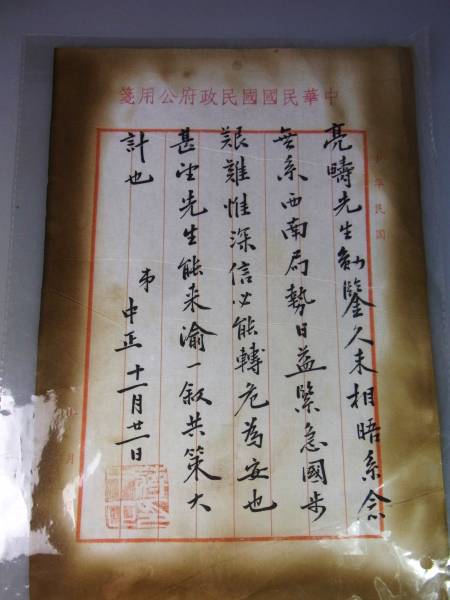 中華民國國民政府公用箋
亮疇先生勛鑒久未相晤系念
無系西南局勢日益緊急國步
艱難惟深信必能轉危為安也
甚望先生能来渝一叙共策大
計也
弟中正 十一月廿一日
華民國
月